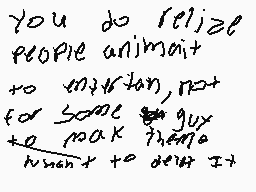 you do relize
people animait
to entertan, not
for some guy
to mak them
want to delet It